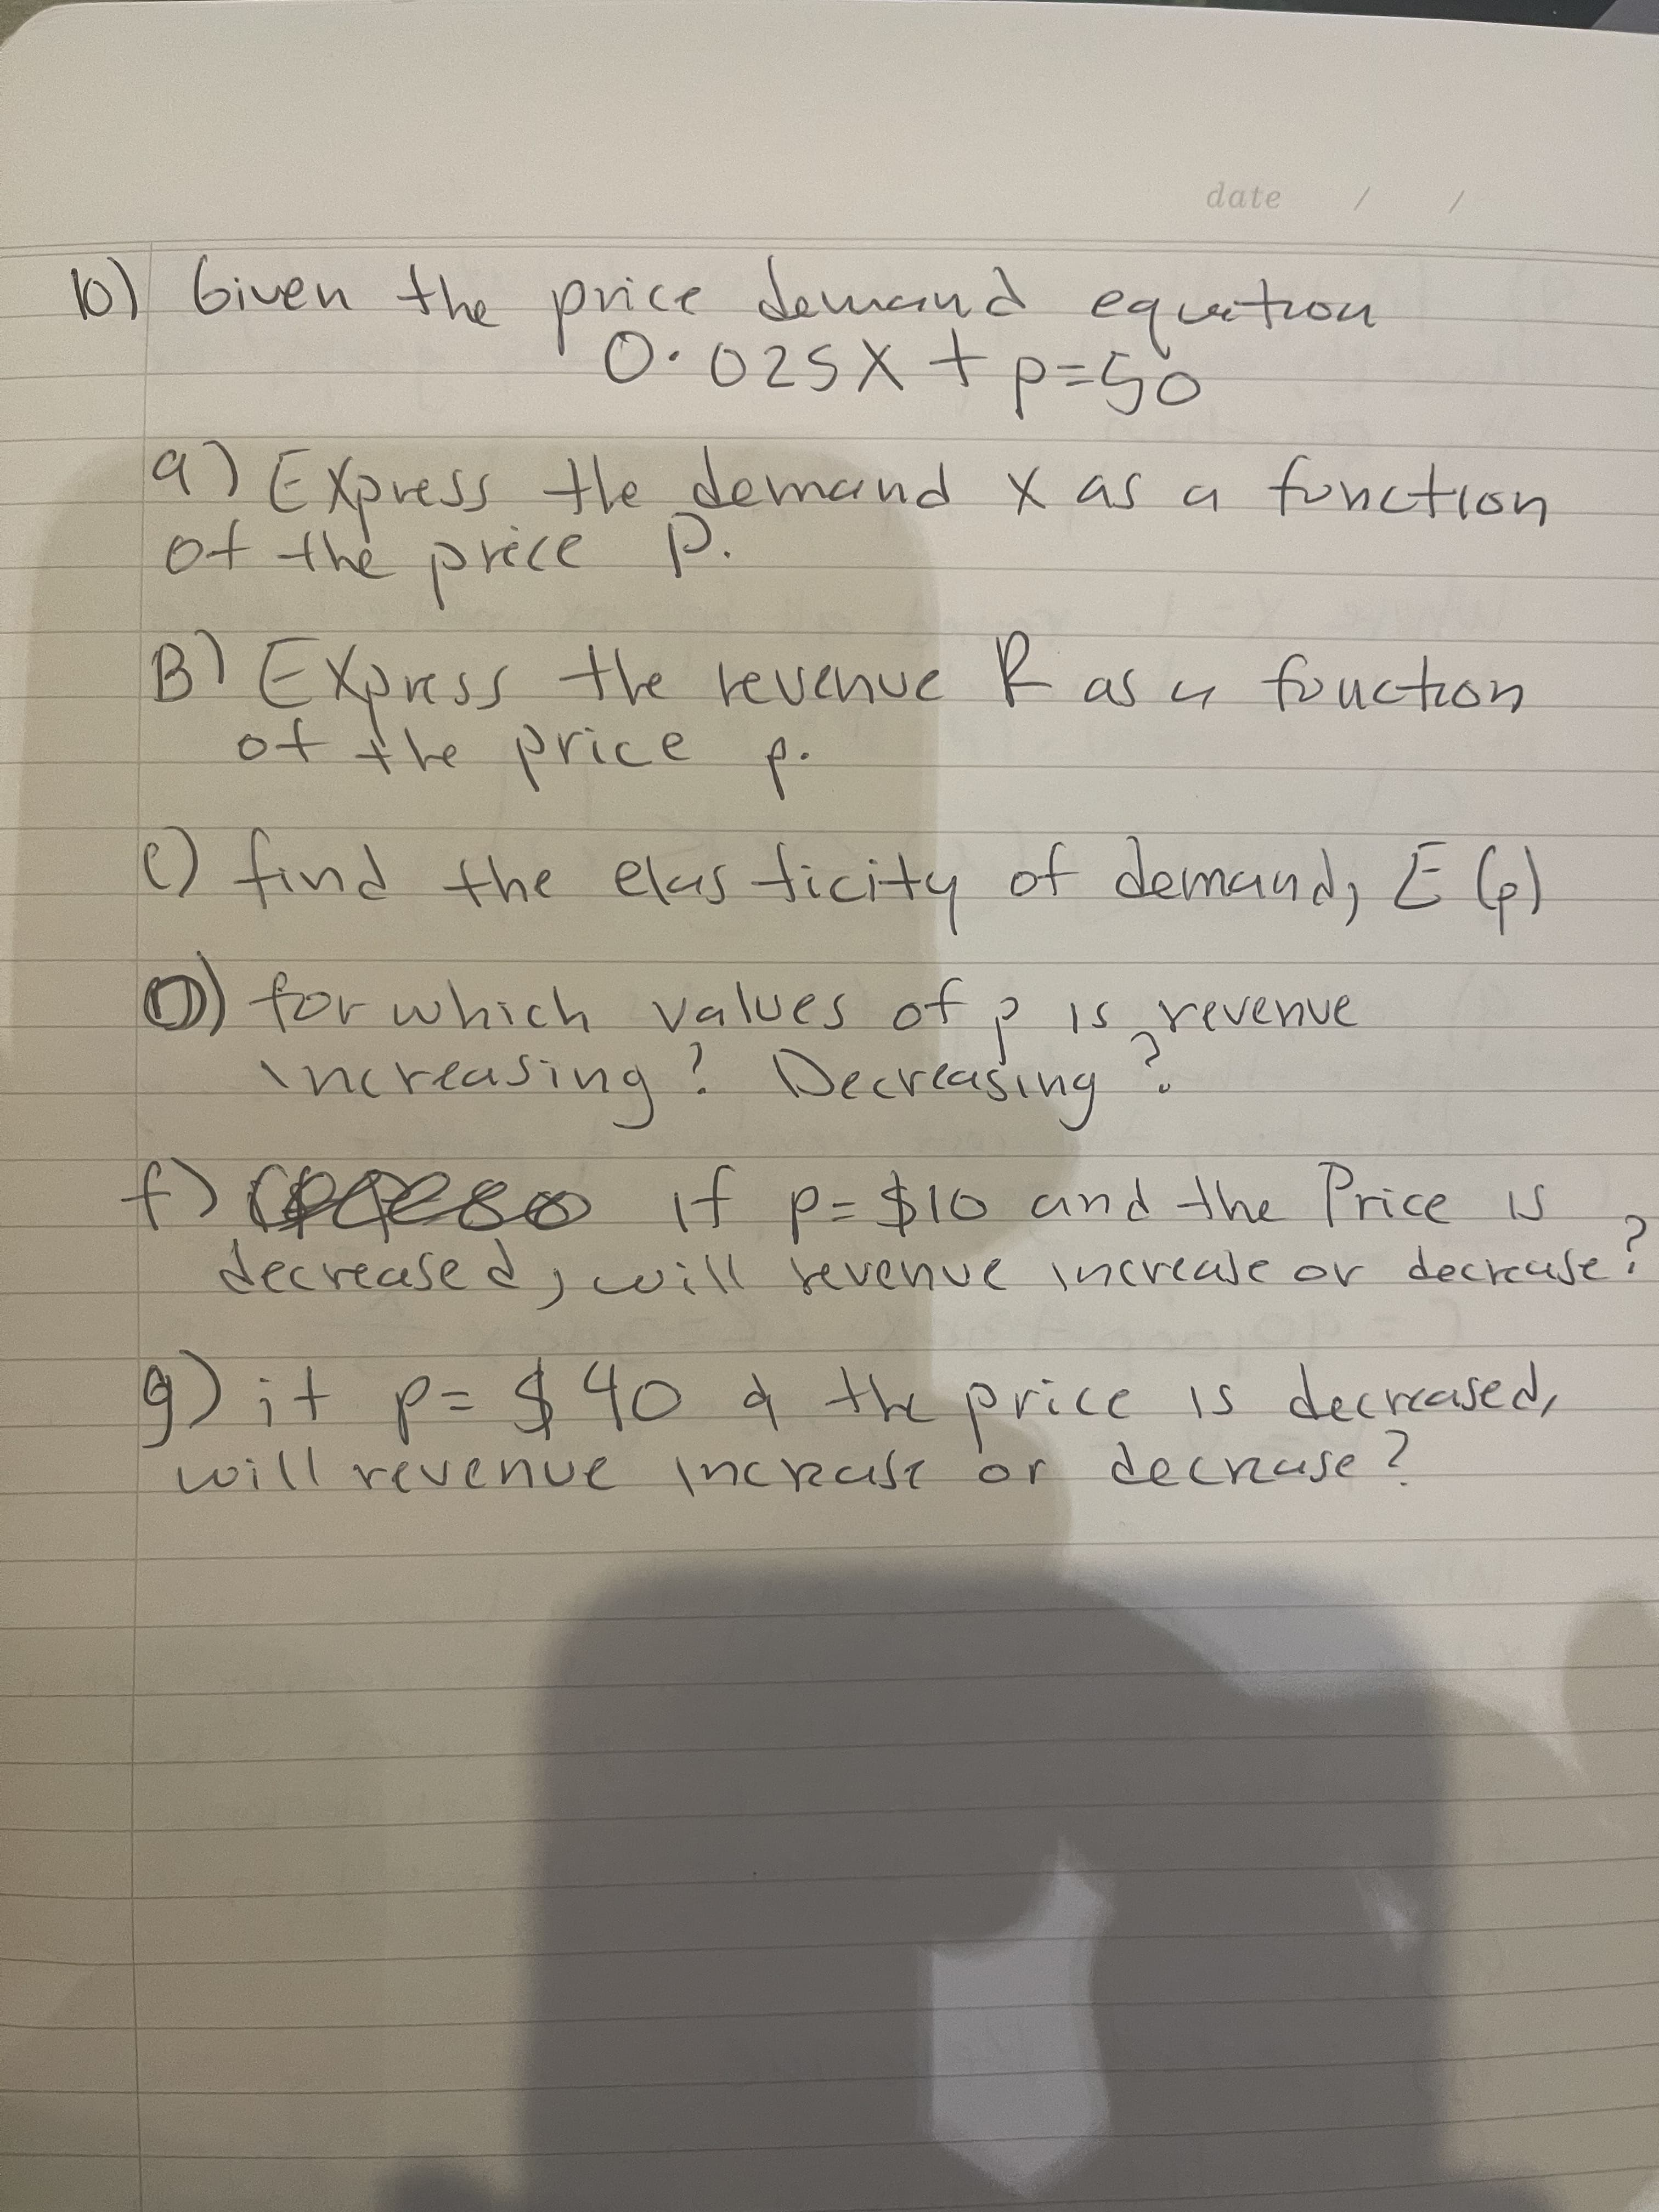 date / /
10) Given the price demand equation
0.025x + p=50
a) Express the demand x as a function
of the price p.
B) Express the revenue R as a function
of the price p.
c) find the elasticity of demand, E(p)
D) for which values of p is revenue
increasing? Decreasing?
f) if p= $10 and the Price is
decreased, will revenue increase or decrease?
g) if p= $40 & the price is decreased,
will revenue increase or decrease?